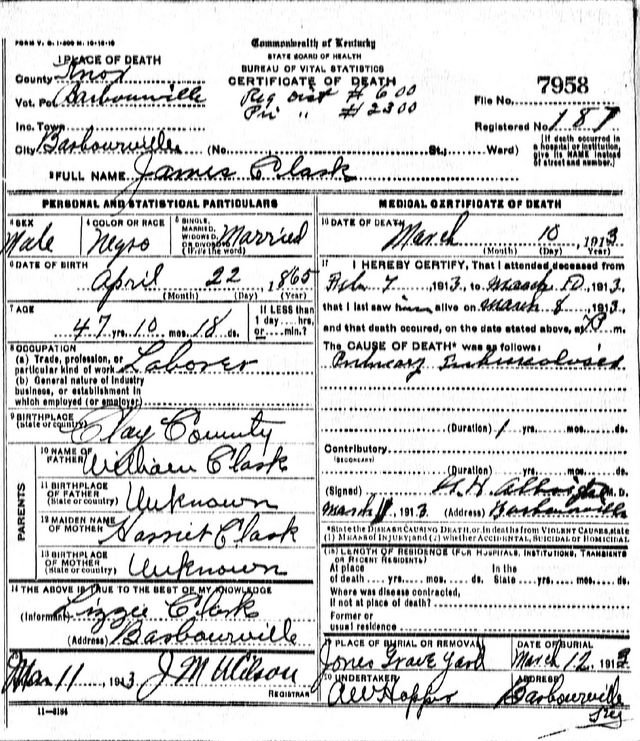 FORM V. S. 1-500 M. 10-16-10
Commonwealth of Kentucky
STATE BOARD OF HEALTH
BUREAU OF VITAL STATISTICS
CERTIFICATE OF DEATH
1 PLACE OF DEATH
County Knox
Vot. Pct Barbourville
Reg Dist # 600
Pri " # 2300
File No. 7958
Inc. Town
Registered No 187
City Barbourville (No. St.; Ward)
(If death occurred in a hospital or institution, give its NAME instead of street and number.)
2 FULL NAME James Clark
PERSONAL AND STATISTICAL PARTICULARS
3 SEX Male
4 COLOR OR RACE Negro
5 SINGLE, MARRIED, WIDOWED, OR DIVORCED (Write the word) Married
6 DATE OF BIRTH April 22, 1865
(Month) (Day) (Year)
7 AGE 47 yrs. 10 mos. 18 ds.
If LESS than 1 day... hrs. or... min.?
8 OCCUPATION
(a) Trade, profession, or particular kind of work Laborer
(b) General nature of industry business, or establishment in which employed (or employer)
9 BIRTHPLACE (State or country) Clay County
PARENTS
10 NAME OF FATHER William Clark
11 BIRTHPLACE OF FATHER (State or country) Unknown
12 MAIDEN NAME OF MOTHER Harriet Clark
13 BIRTHPLACE OF MOTHER (State or country) Unknown
14 THE ABOVE IS TRUE TO THE BEST OF MY KNOWLEDGE
(Informant) Lizzie Clark
(Address) Barbourville
15 Mar 11, 1913 J M Wilson
REGISTRAR
11-3184
MEDICAL CERTIFICATE OF DEATH
16 DATE OF DEATH March 10, 1913
(Month) (Day) (Year)
17 I HEREBY CERTIFY, That I attended deceased from
Feb 7, 1913, to March 10, 1913,
that I last saw him alive on March 8, 1913,
and that death occured, on the date stated above, at m.
The CAUSE OF DEATH* was as follows:
(Duration) 1 yrs. mos. ds.
Contributory
(SECONDARY)
(Duration) yrs. mos. ds.
(Signed) M.D.
March, 1913 (Address) Barbourville
*State the DISEASE CAUSING DEATH, or in deaths from VIOLENT CAUSES, state (1) MEANS OF INJURY; and (2) whether ACCIDENTAL, SUICIDAL OR HOMICIDAL
18 LENGTH OF RESIDENCE (FOR HOSPITALS, INSTITUTIONS, TRANSIENTS OR RECENT RESIDENTS)
At place of death yrs. mos. ds. In the State yrs. mos. ds.
Where was disease contracted, if not at place of death?
Former or usual residence
19 PLACE OF BURIAL OR REMOVAL Jones Grave Yard
DATE OF BURIAL March 12, 1913
20 UNDERTAKER AW Hopper
ADDRESS Barbourville
Ky